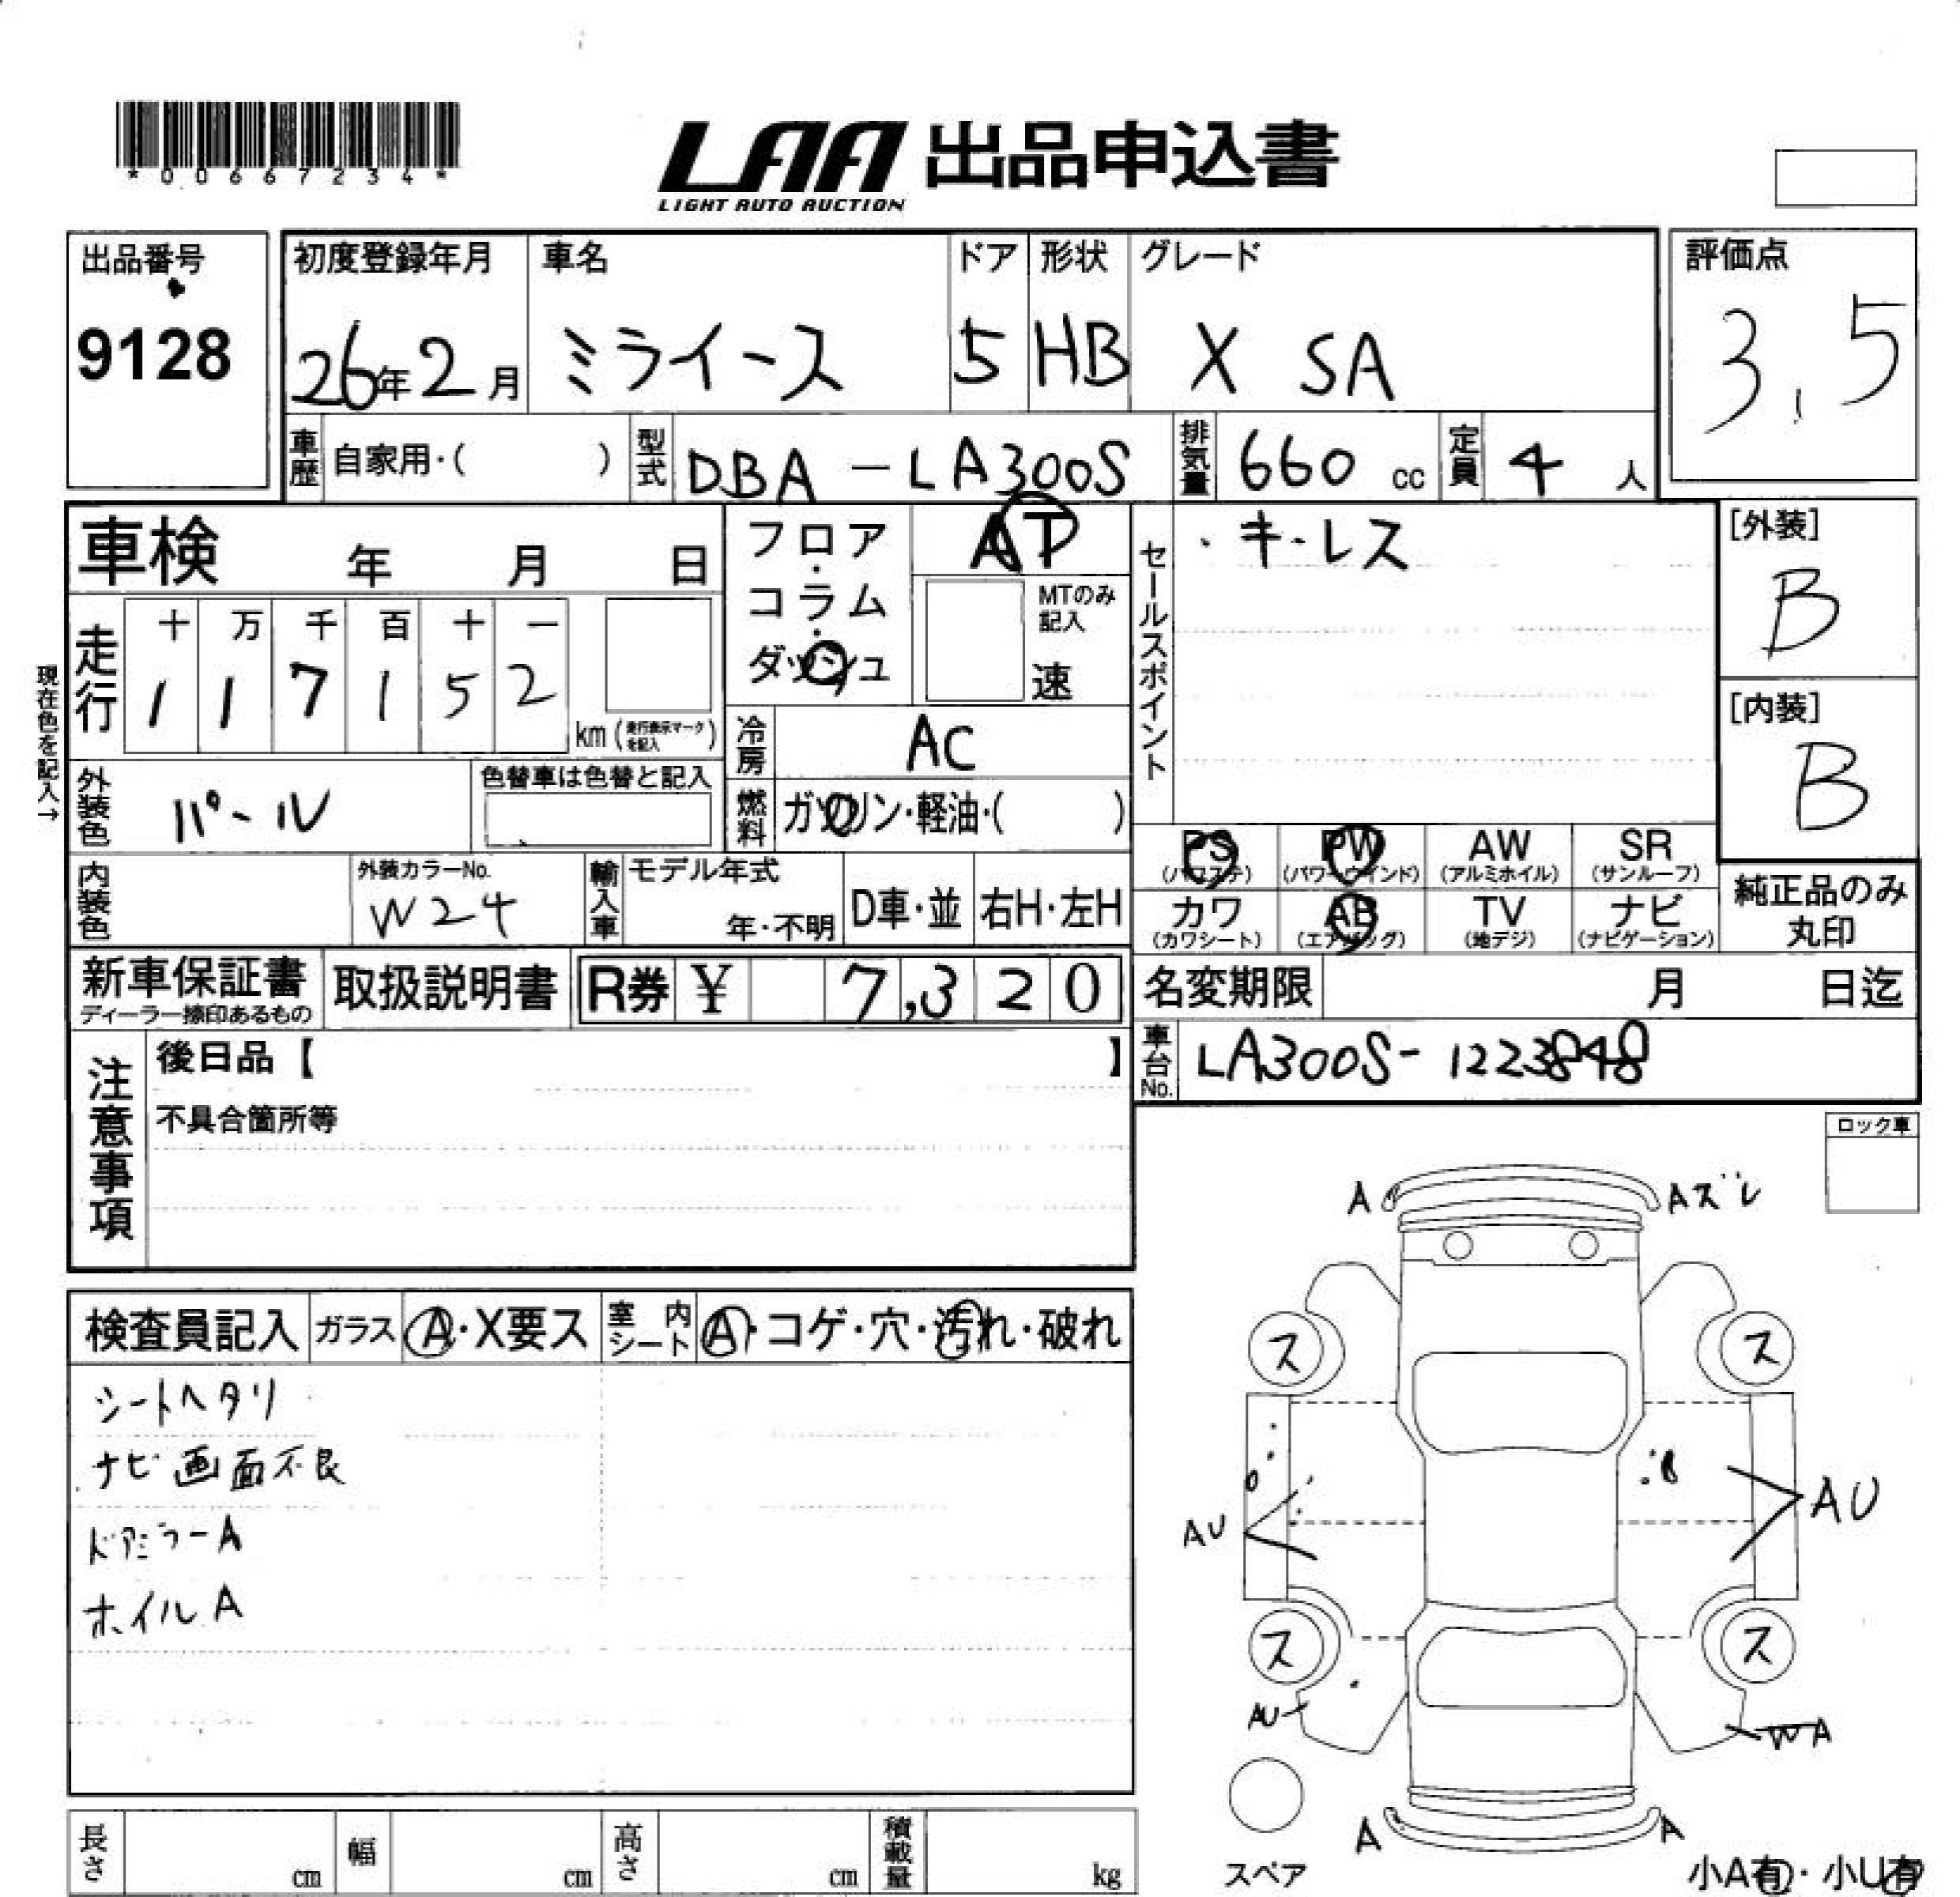 *00667234*
LAA 出品申込書
LIGHT AUTO AUCTION
出品番号
9128
初度登録年月
26年2月
車名
ミライース
ドア
5
形状
HB
グレード
X SA
評価点
3.5
車歴 自家用・( )
型式 DBA-LA300S
排気量 660 cc
定員 4 人
車検 年 月 日
フロア・コラム・ダッシュ
AT
MTのみ記入
速
セールスポイント
・キーレス
[外装]
B
[内装]
B
現在色を記入→
走行
十 万 千 百 十 一
1 1 7 1 5 2
km (走行表示マークを記入)
冷房 AC
外装色 パール
色替車は色替と記入
燃料 ガソリン・軽油・( )
PS (パワステ)
PW (パワーウインド)
AW (アルミホイル)
SR (サンルーフ)
カワ (カワシート)
AB (エアバッグ)
TV (地デジ)
ナビ (ナビゲーション)
純正品のみ丸印
内装色
外装カラーNo.
W24
輸入車
モデル年式
年・不明
D車・並
右H・左H
新車保証書
ディーラー捺印あるもの
取扱説明書
R券 ¥ 7,320
名変期限 月 日迄
車台No. LA300S-1223848
注意事項
後日品【 】
不具合箇所等
ロック車
A
Aズレ
検査員記入
ガラス A・X要ス
室内シート A・コゲ・穴・汚れ・破れ
シートヘタリ
ナビ画面不良
ドアミラーA
ホイルA
ス
ス
AU
AU
ス
ス
AU
WA
A
A
スペア
小A有・小U有
長さ cm
幅 cm
高さ cm
積載量 kg